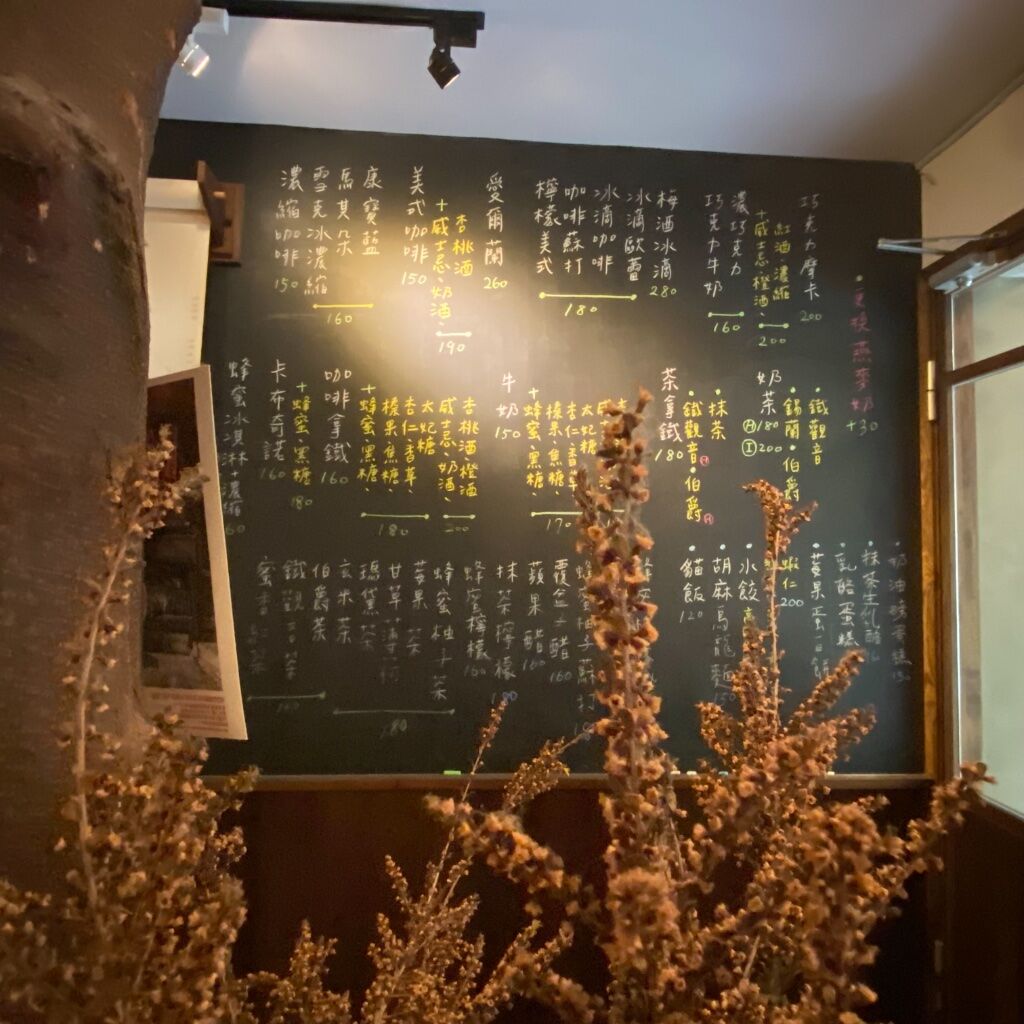 濃縮咖啡 150
雪克冰濃縮
馬其朵
康寶藍
160
美式咖啡 150
+威士忌、奶酒、
杏桃酒
190
愛爾蘭 260
檸檬美式
咖啡蘇打
冰滴咖啡
冰滴歐蕾
180
梅酒冰滴 280
巧克力牛奶
濃巧克力
160
+威士忌、橙酒、
紅酒、濃縮
200
巧克力摩卡 200
·更換燕麥奶 +30
蜂蜜冰淇淋+濃縮
卡布奇諾 160
+蜂蜜、黑糖 180
咖啡拿鐵 160
+蜂蜜、黑糖、
榛果、焦糖、
杏仁、香草、
太妃糖
180
威士忌、奶酒、
杏桃酒橙酒
200
牛奶 150
+蜂蜜、黑糖、
榛果、焦糖、
杏仁、香草
太妃糖
170
茶拿鐵 180
·鐵觀音Ⓗ·伯爵Ⓗ
·抹茶
奶茶 Ⓗ180 Ⓘ200
·錫蘭·伯爵
·鐵觀音
蜜香紅茶
鐵觀音茶
伯爵茶
160
玄米茶
瑪黛茶
甘草薄荷
莓果茶
蜂蜜柚子茶
180
蜂蜜檸檬 160
抹茶檸檬 180
蘋果醋 160
覆盆子醋 160
蜂蜜柚子蘇打
·貓飯 120
·胡麻烏龍麵 150
·水餃
·蝦仁 200
·乳酪蛋糕
·抹茶生乳酪
150